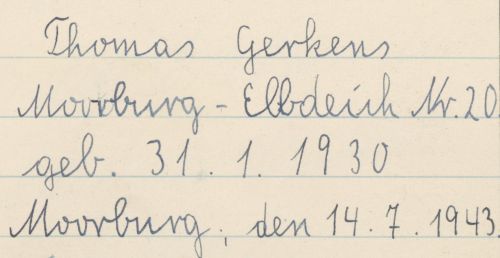 Thomas Gerkens
Moorburg - Elbdeich Nr. 20.
geb. 31. 1. 1930
Moorburg, den 14. 7. 1943.